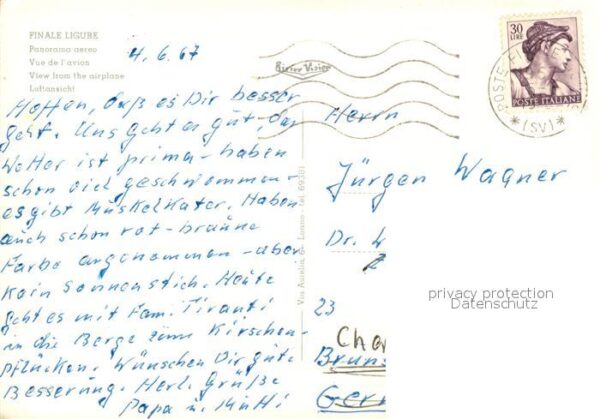 FINALE LIGURE
Panorama aereo
Vue de l'avion
View from the airplane
Luftansicht
4.6.67
Hoffen, daß es Dir besser
geht. Uns geht es gut, das
Wetter ist prima - haben
schon viel geschwommen -
es gibt Muskelkater. Haben
auch schon rot-braune
Farbe angenommen - aber
kein Sonnenstich. Heute
geht es mit Fam. Tiranti
in die Berge zum Kirschen-
pflücken. Wünschen Dir gute
Besserung. Herl. Grüße
Papa u. Mutti
Via Aurelia,
tel 69381
30
LIRE
POSTE ITALIANE
POSTE
(SV)
Herrn
Jürgen Wagner
Dr.
23
privacy protection
Datenschutz